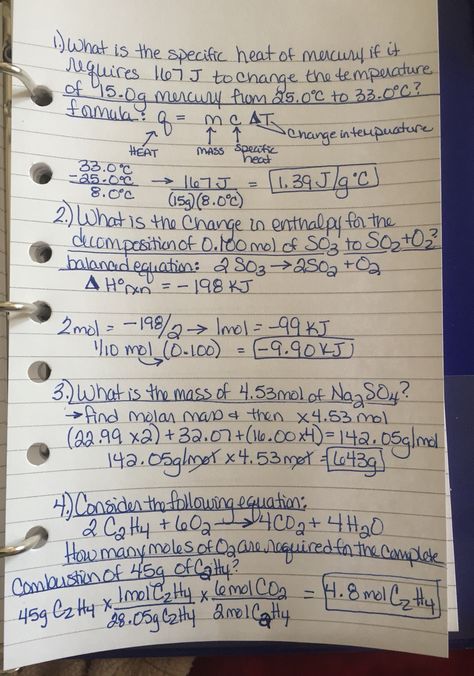 1.) What is the specific heat of mercury if it
requires 167 J to change the temperature
of 15.0g mercury from 25.0°C to 33.0°C?
formula: q = m c ΔT
HEAT MASS specific heat Change in temperature
33.0°C
-25.0°C
8.0°C → 167 J / (15g)(8.0°C) = 1.39 J/g°C
2.) What is the Change in enthalpy for the
decomposition of 0.100 mol of SO₃ to SO₂+O₂?
balanced equation: 2SO₃ → 2SO₂ + O₂
ΔH°rxn = -198 KJ
2mol = -198/2 → 1mol = -99 KJ
1/10 mol (0.100) = -9.90 KJ
3.) What is the mass of 4.53mol of Na₂SO₄?
→ find molar mass & then x4.53 mol
(22.99 x2) + 32.07 + (16.00x4) = 142.05g/mol
142.05g/mol x 4.53mol = 643g
4.) Consider the following equation:
2 C₂H₄ + 6O₂ → 4CO₂ + 4H₂O
How many moles of O₂ are required for the complete
combustion of 45g of C₂H₄?
45g C₂H₄ x 1mol C₂H₄ / 28.05g C₂H₄ x 6mol CO₂ / 2mol C₂H₄ = 4.8 mol C₂H₄